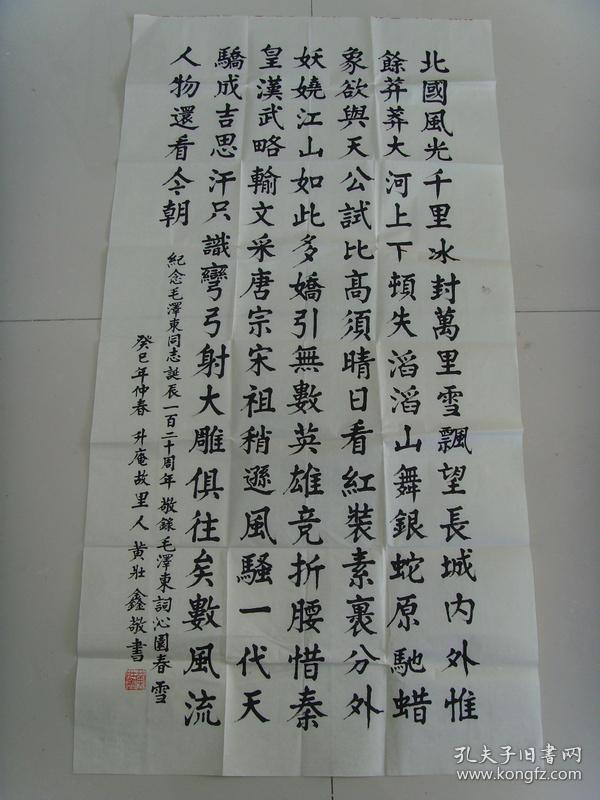 北國風光千里冰封萬里雪飄望長城内外惟
餘莽莽大河上下頓失滔滔山舞銀蛇原馳蜡
象欲與天公試比高須晴日看紅裝素裹分外
妖嬈江山如此多嬌引無數英雄竞折腰惜秦
皇漢武略輸文采唐宗宋祖稍遜風騷一代天
驕成吉思汗只識彎弓射大雕俱往矣數風流
人物還看今朝
紀念毛澤東同志誕辰一百二十周年 敬録毛澤東詞沁園春雪
癸巳年仲春 升庵故里人 黄壯鑫敬書
孔夫子旧书网
www.kongfz.com